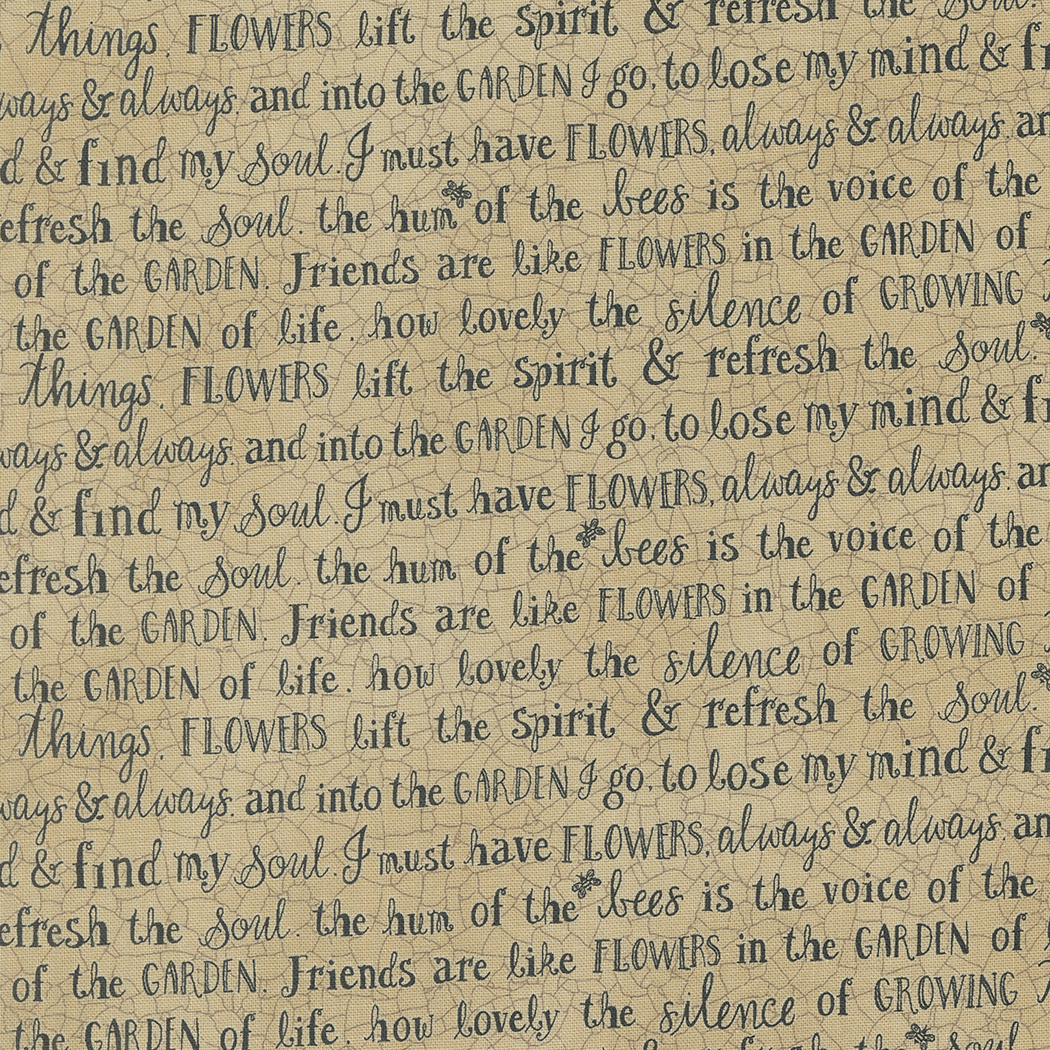 things. FLOWERS lift the spirit & refresh the soul.
ways & always. and into the GARDEN I go, to lose my mind & fi
d & find my soul. I must have FLOWERS, always & always. an
efresh the soul. the hum of the bees is the voice of the
of the GARDEN. Friends are like FLOWERS in the GARDEN of
the GARDEN of life. how lovely the silence of GROWING
things. FLOWERS lift the spirit & refresh the soul.
ways & always. and into the GARDEN I go, to lose my mind & fi
d & find my soul. I must have FLOWERS, always & always. an
efresh the soul. the hum of the bees is the voice of the
of the GARDEN. Friends are like FLOWERS in the GARDEN of
the GARDEN of life. how lovely the silence of GROWING
things. FLOWERS lift the spirit & refresh the soul.
ways & always. and into the GARDEN I go, to lose my mind & fi
d & find my soul. I must have FLOWERS, always & always. an
efresh the soul. the hum of the bees is the voice of the
of the GARDEN. Friends are like FLOWERS in the GARDEN of
the GARDEN of life. how lovely the silence of GROWING
soul